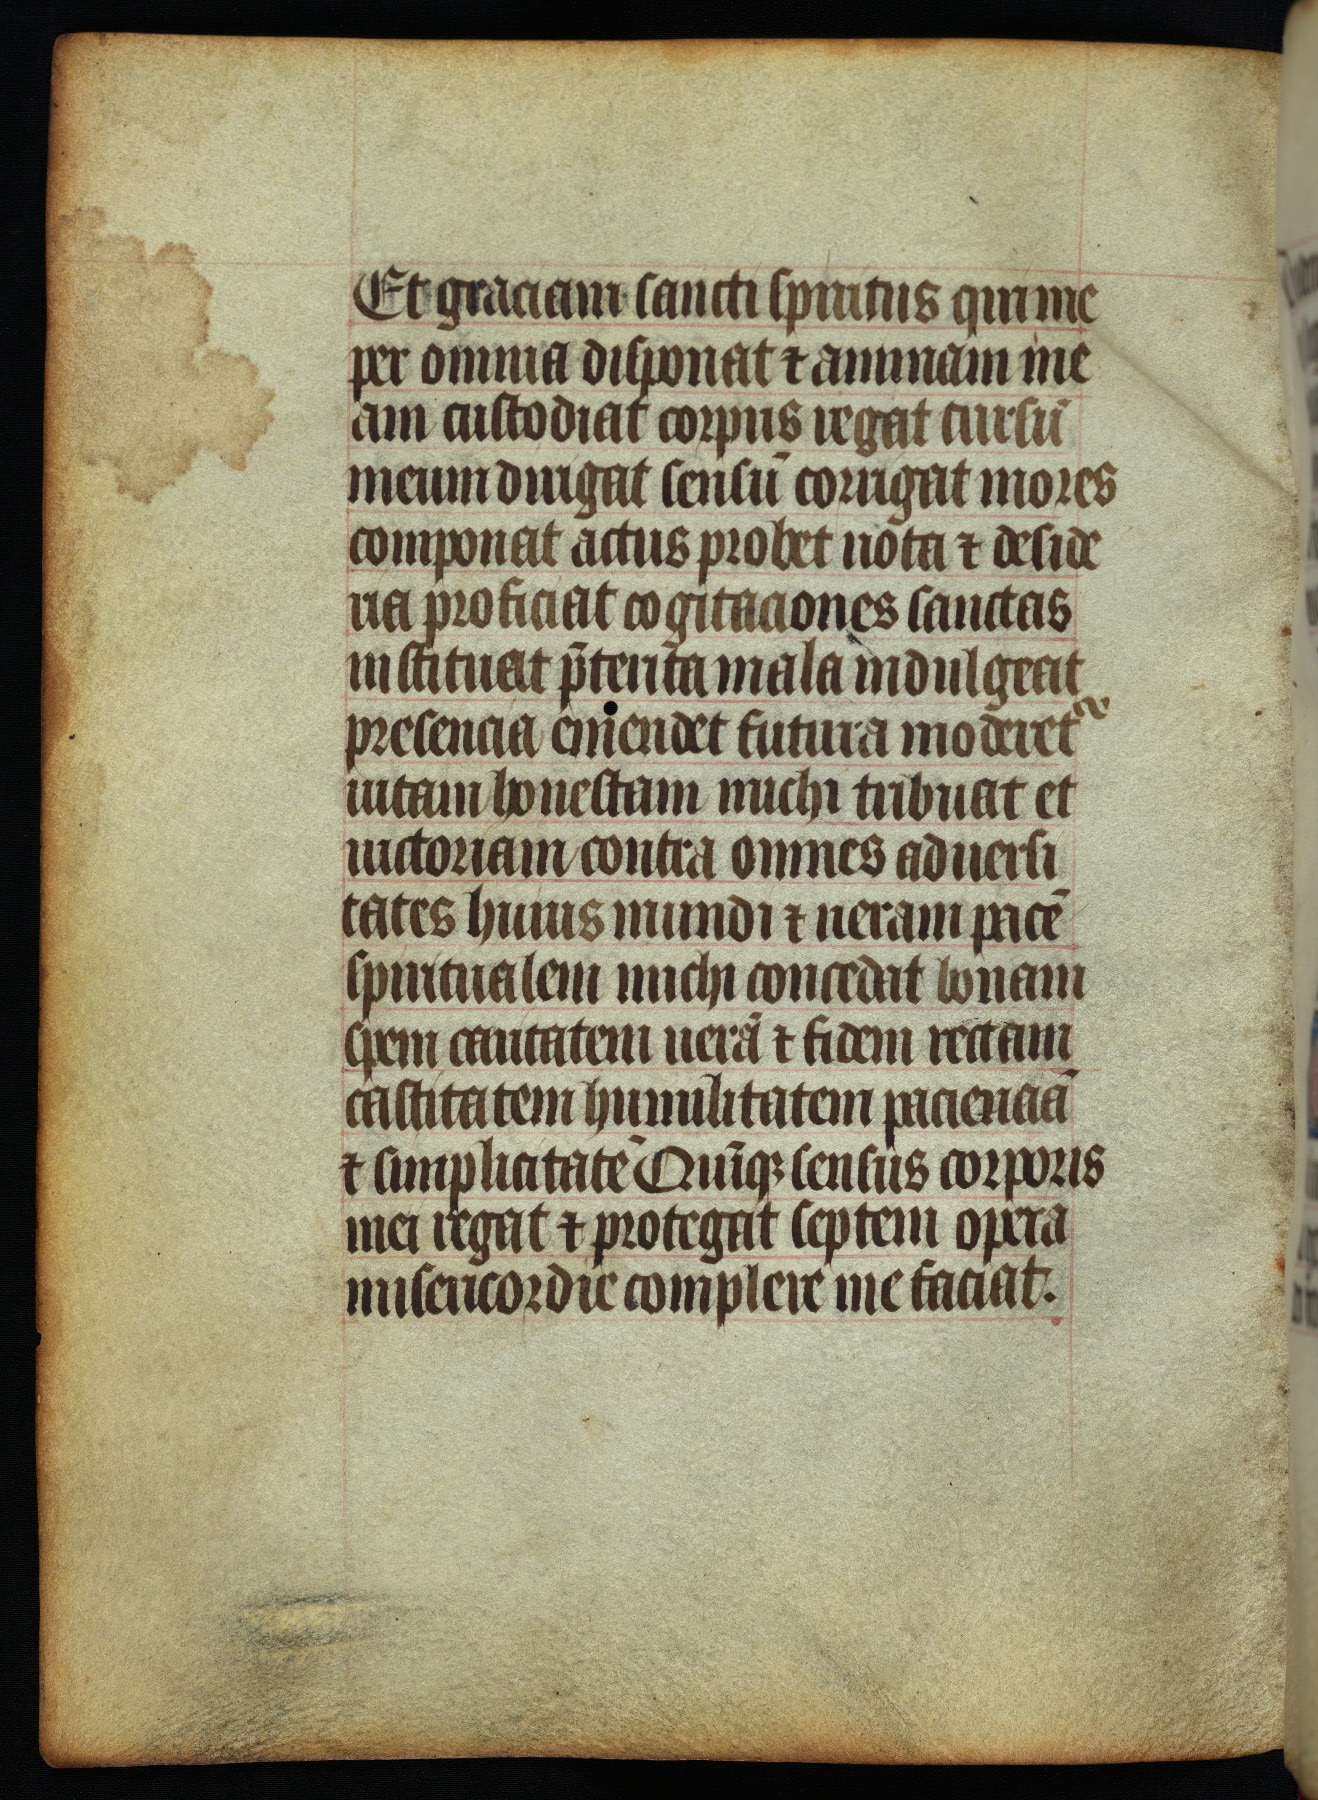 Et graciam sancti spiritus qui me
per omnia disponat ⁊ animam me
am custodiat corpus regat cursū
meum dirigat sensū corrigat mores
componat actus probet uota ⁊ deside
ria proficiat cogitaciones sanctas
instituat p̄terita mala indulgeat
presencia emendet futura moderet᷑
uitam honestam michi tribuat et
uictoriam contra omnes aduersi
tates huius mundi ⁊ ueram pacē
spiritualem michi concedat bonam
spem caritatem uerā ⁊ fidem rectam
castitatem humilitatem pacienciā
⁊ simplicitatē Quīqꝫ sensus corporis
mei regat ⁊ protegat septem opera
misericordie complere me faciat.